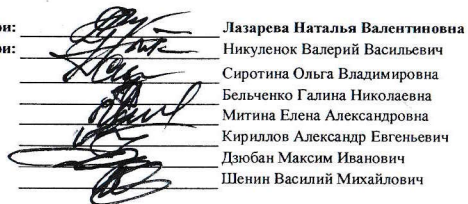 ри: Лазарева Наталья Валентиновна
ри: Никуленок Валерий Васильевич
Сиротина Ольга Владимировна
Бельченко Галина Николаевна
Митина Елена Александровна
Кириллов Александр Евгеньевич
Дзюбан Максим Иванович
Шенин Василий Михайлович